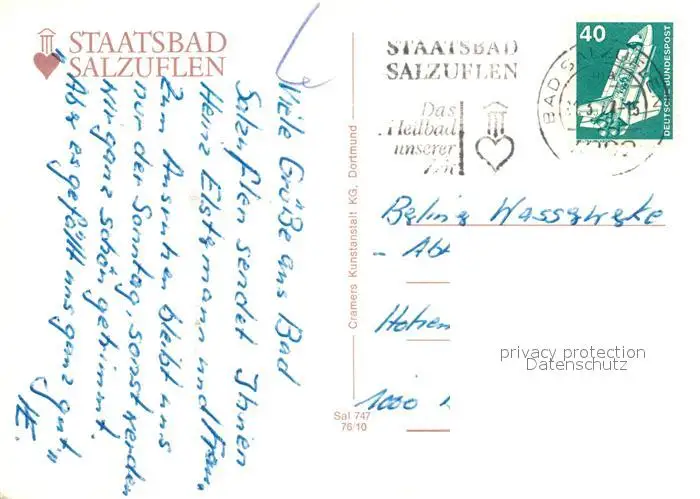 STAATSBAD
SALZUFLEN
Viele Grüße aus Bad
Salzuflen sendet Ihnen
Heinz Elstermann und Frau.
Zum Ausruhen bleibt uns
nur der Sonntag, sonst werden
wir ganz schön getrimmt.
Aber es gefällt uns ganz gut"
HE.
Cramers Kunstanstalt KG, Dortmund
Sal 747
76/10
STAATSBAD
SALZUFLEN
Das
Heilbad
unserer
Zeit
BAD SALZUFLEN
40
DEUTSCHE BUNDESPOST
- Abt
Hohen
1000
privacy protection
Datenschutz